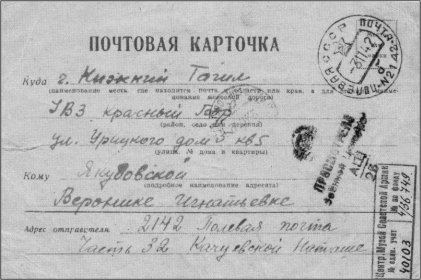 ПОЧТОВАЯ КАРТОЧКА
Куда г. Нижний Тагил
(наименование места, где находится почта, и области или края, а для
наименование железной дороги)
УВЗ красный Бор
(район, село или деревня)
ул. Урицкого дом 3 кв 5
(улица, № дома и квартиры)
Кому Якубовской
(подробное наименование адресата)
Веронике Игнатьевне
Адрес отправителя: 2142 Полевая почта
Часть 32 Качуевской Наташе
ПОЛЕВАЯ ПОЧТА
СССР
ПРОСМОТРЕНО
Военной
Центр. Музей Советской Армии
4/36749
40103